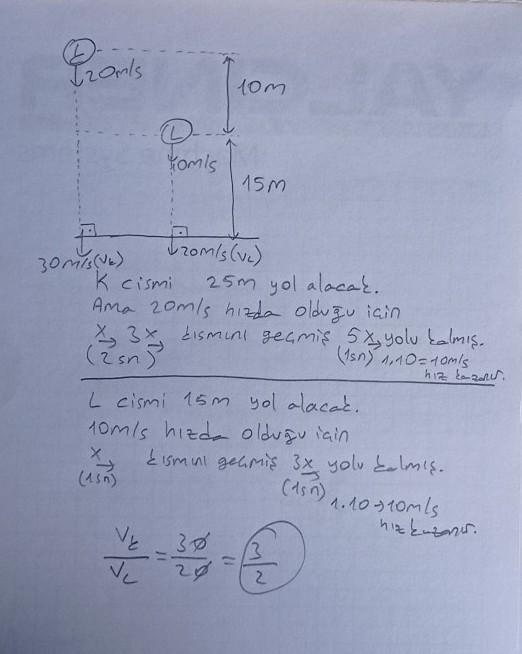 L
20m/s
10m
L
10m/s
15m
30m/s(Vk) 20m/s(VL)
K cismi 25m yol alacak.
Ama 20m/s hızda olduğu için
x→ 3x→ kısmını geçmiş 5x→ yolu kalmış.
(2sn) (1sn) 1.10=10m/s
hız kazanır.
L cismi 15m yol alacak.
10m/s hızda olduğu için
x→ kısmını geçmiş 3x→ yolu kalmış.
(1sn) (1sn)
1.10→10m/s
hız kazanır.
Vk/VL = 30/20 = 3/2